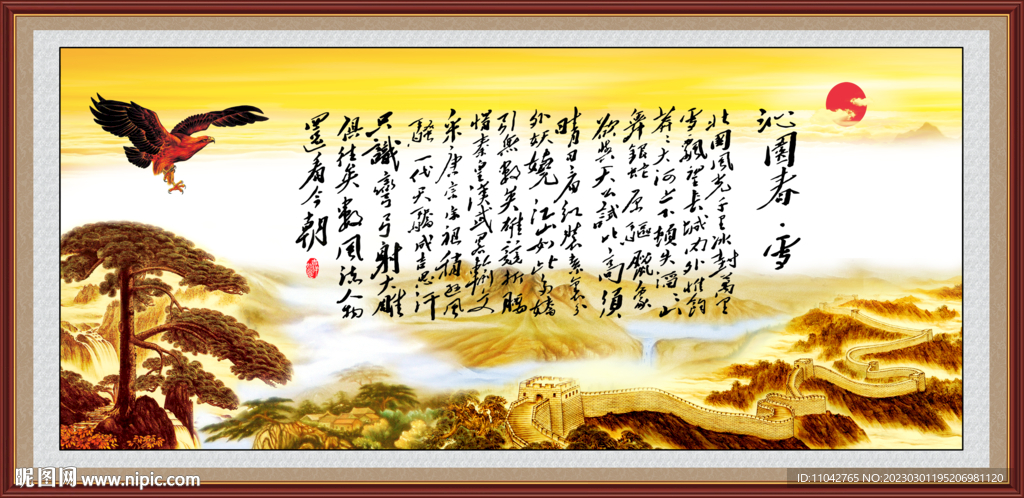 沁園春·雪
北国风光千里冰封萬里
雪飄望长城内外惟餘
莽々大河上下頓失滔々山
舞银蛇原驅臘象
欲与天公試比高須
晴日看红装素裹分
外妖娆江山如此多嬌
引無數英雄競折腰
惜秦皇漢武略輸文
采唐宗宋祖稍逊风
騷一代天驕成吉思汗
只識彎弓射大雕
俱往矣數风流人物
還看今朝
昵图网 www.nipic.com
ID:11042765 NO:20230301195206981120